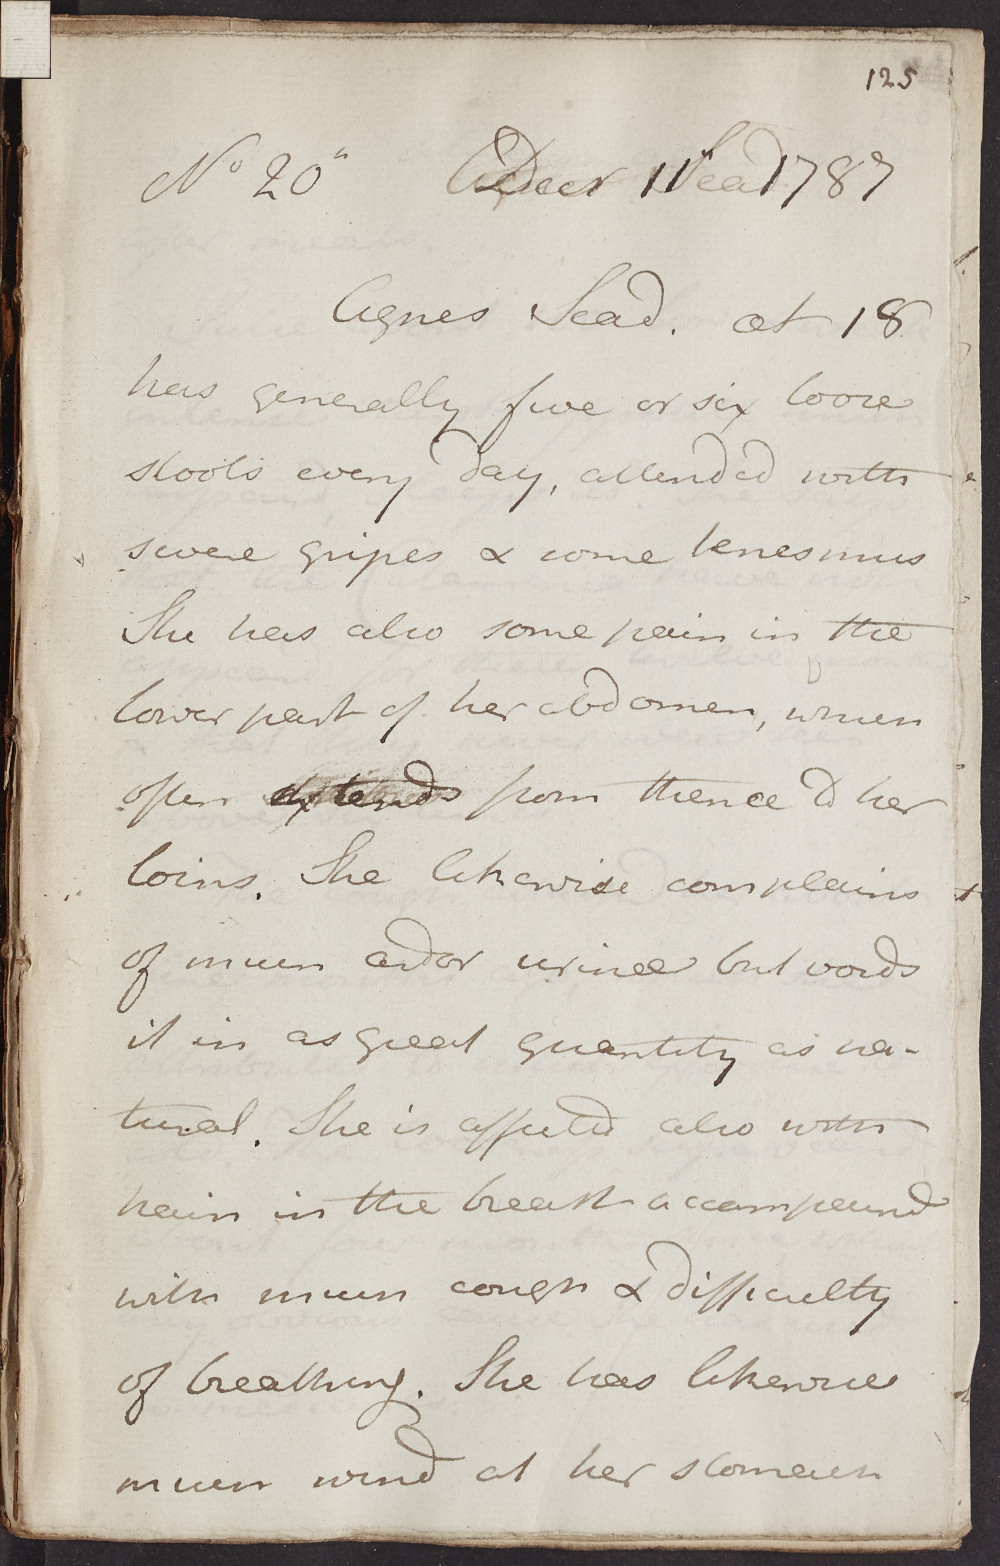 125
No 20" Decr 11th 1787
Agnes Sead. aet 18
has generally five or six loose
stools every day, attended with
severe gripes & some tenesmus
She has also some pain in the
lower part of her abdomen, which
often extends from thence to her
loins. She likewise complains
of much ardor urinae but voids
it in as great quantity as na-
tural. She is affected also with
pain in the breast accompanied
with much cough & difficulty
of breathing. She has likewise
much wind at her stomach